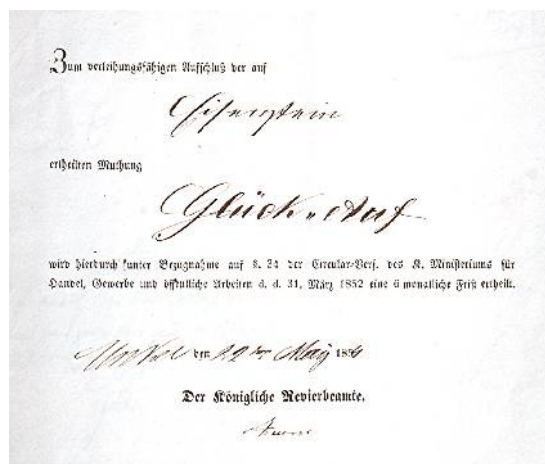 Zum verleihungsfähigen Aufschluß der auf
Eisenstein
ertheilten Muthung
Glück-Auf
wird hierdurch unter Bezugnahme auf §. 24 der Circular-Verf. des K. Ministeriums für
Handel, Gewerbe und öffentliche Arbeiten d. d. 31. März 1852 eine 6 monatliche Frist ertheilt.
den 22ten May
Der Königliche Revierbeamte.